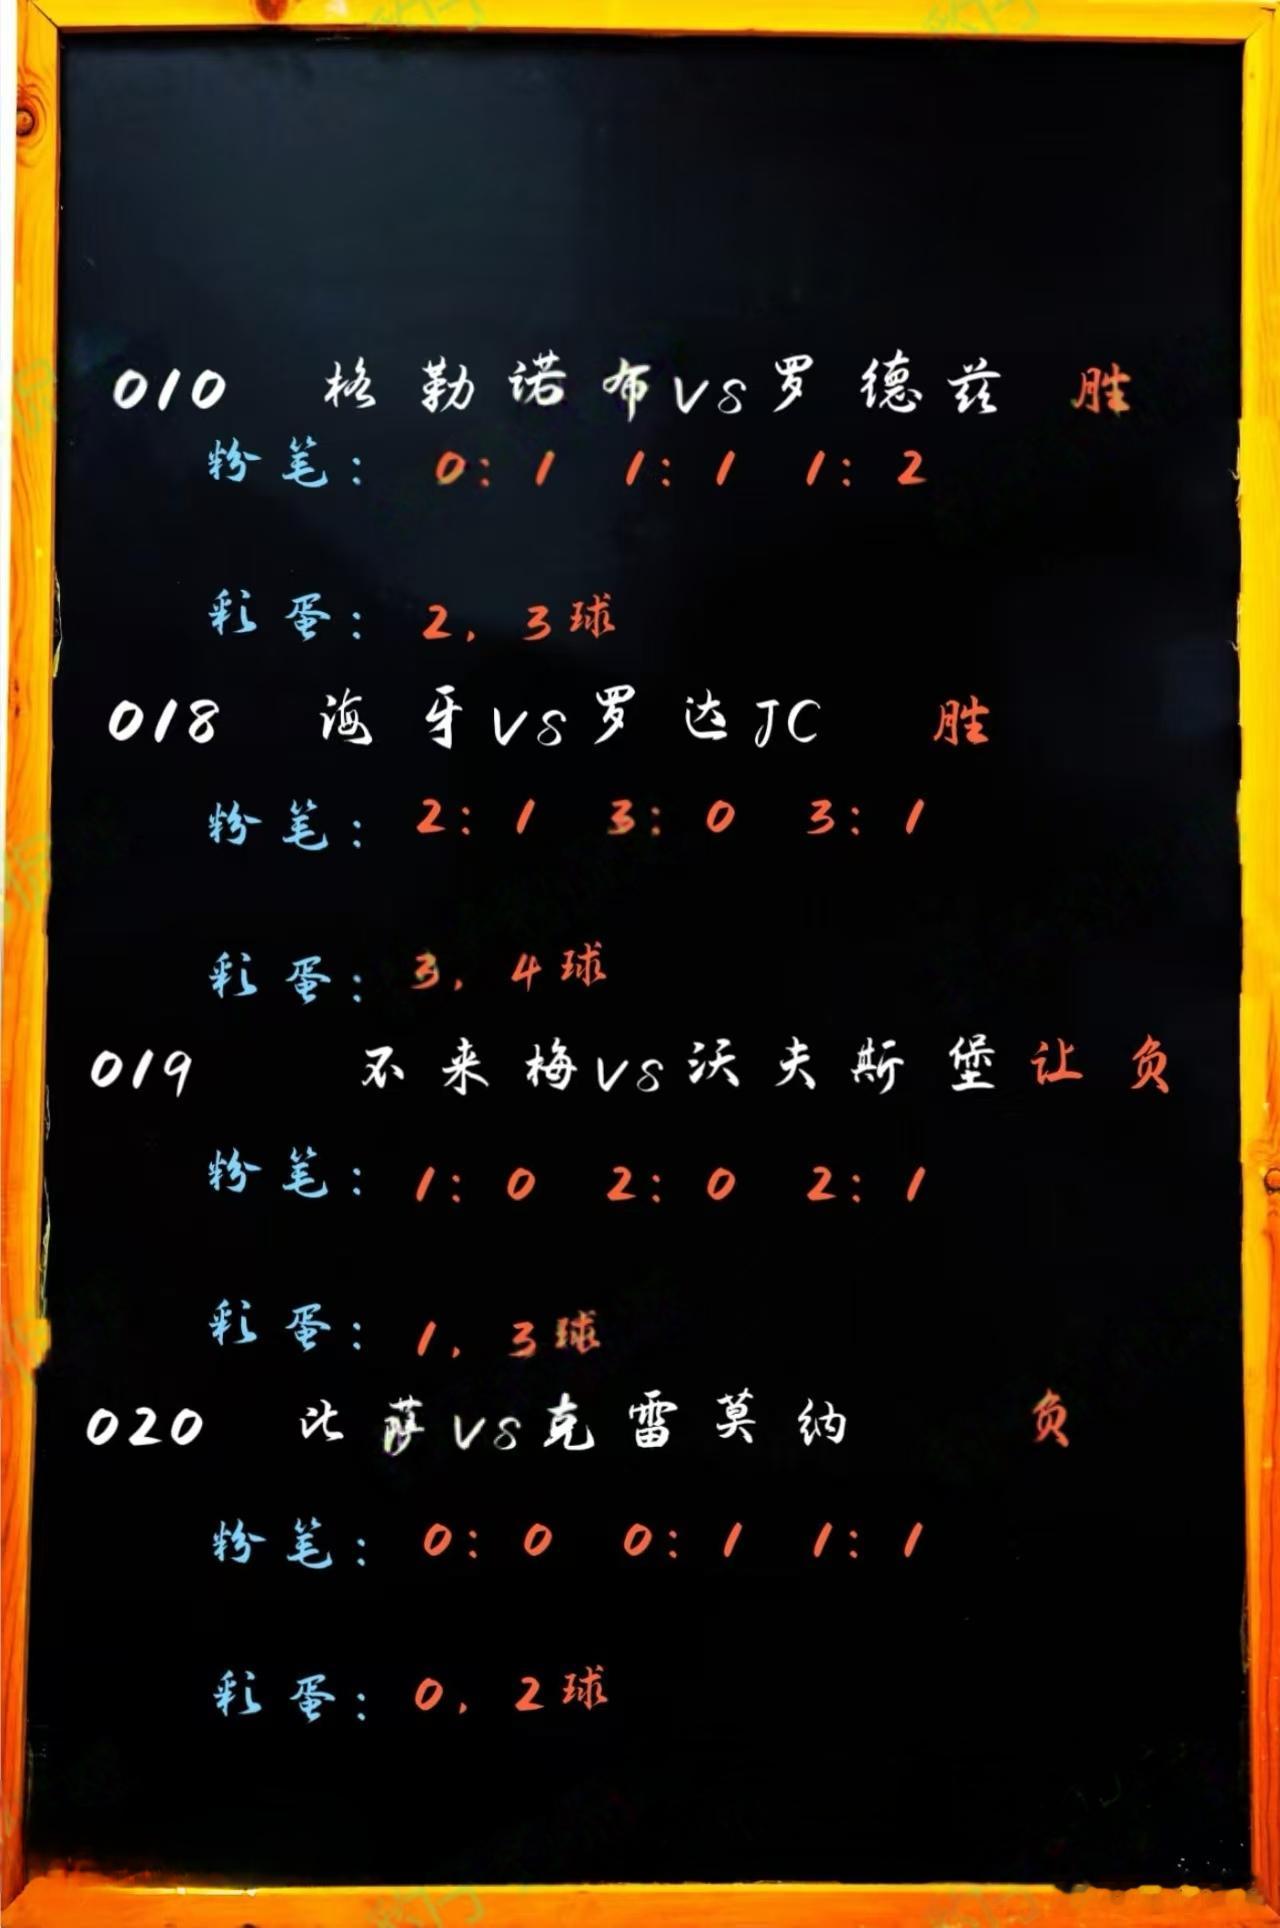 010 格勒诺布VS罗德兹 胜
粉笔: 0:1 1:1 1:2
彩蛋: 2, 3球
018 海牙VS罗达JC 胜
粉笔: 2:1 3:0 3:1
彩蛋: 3, 4球
019 不来梅VS沃夫斯堡 让负
粉笔: 1:0 2:0 2:1
彩蛋: 1, 3球
020 比萨VS克雷莫纳 负
粉笔: 0:0 0:1 1:1
彩蛋: 0, 2球